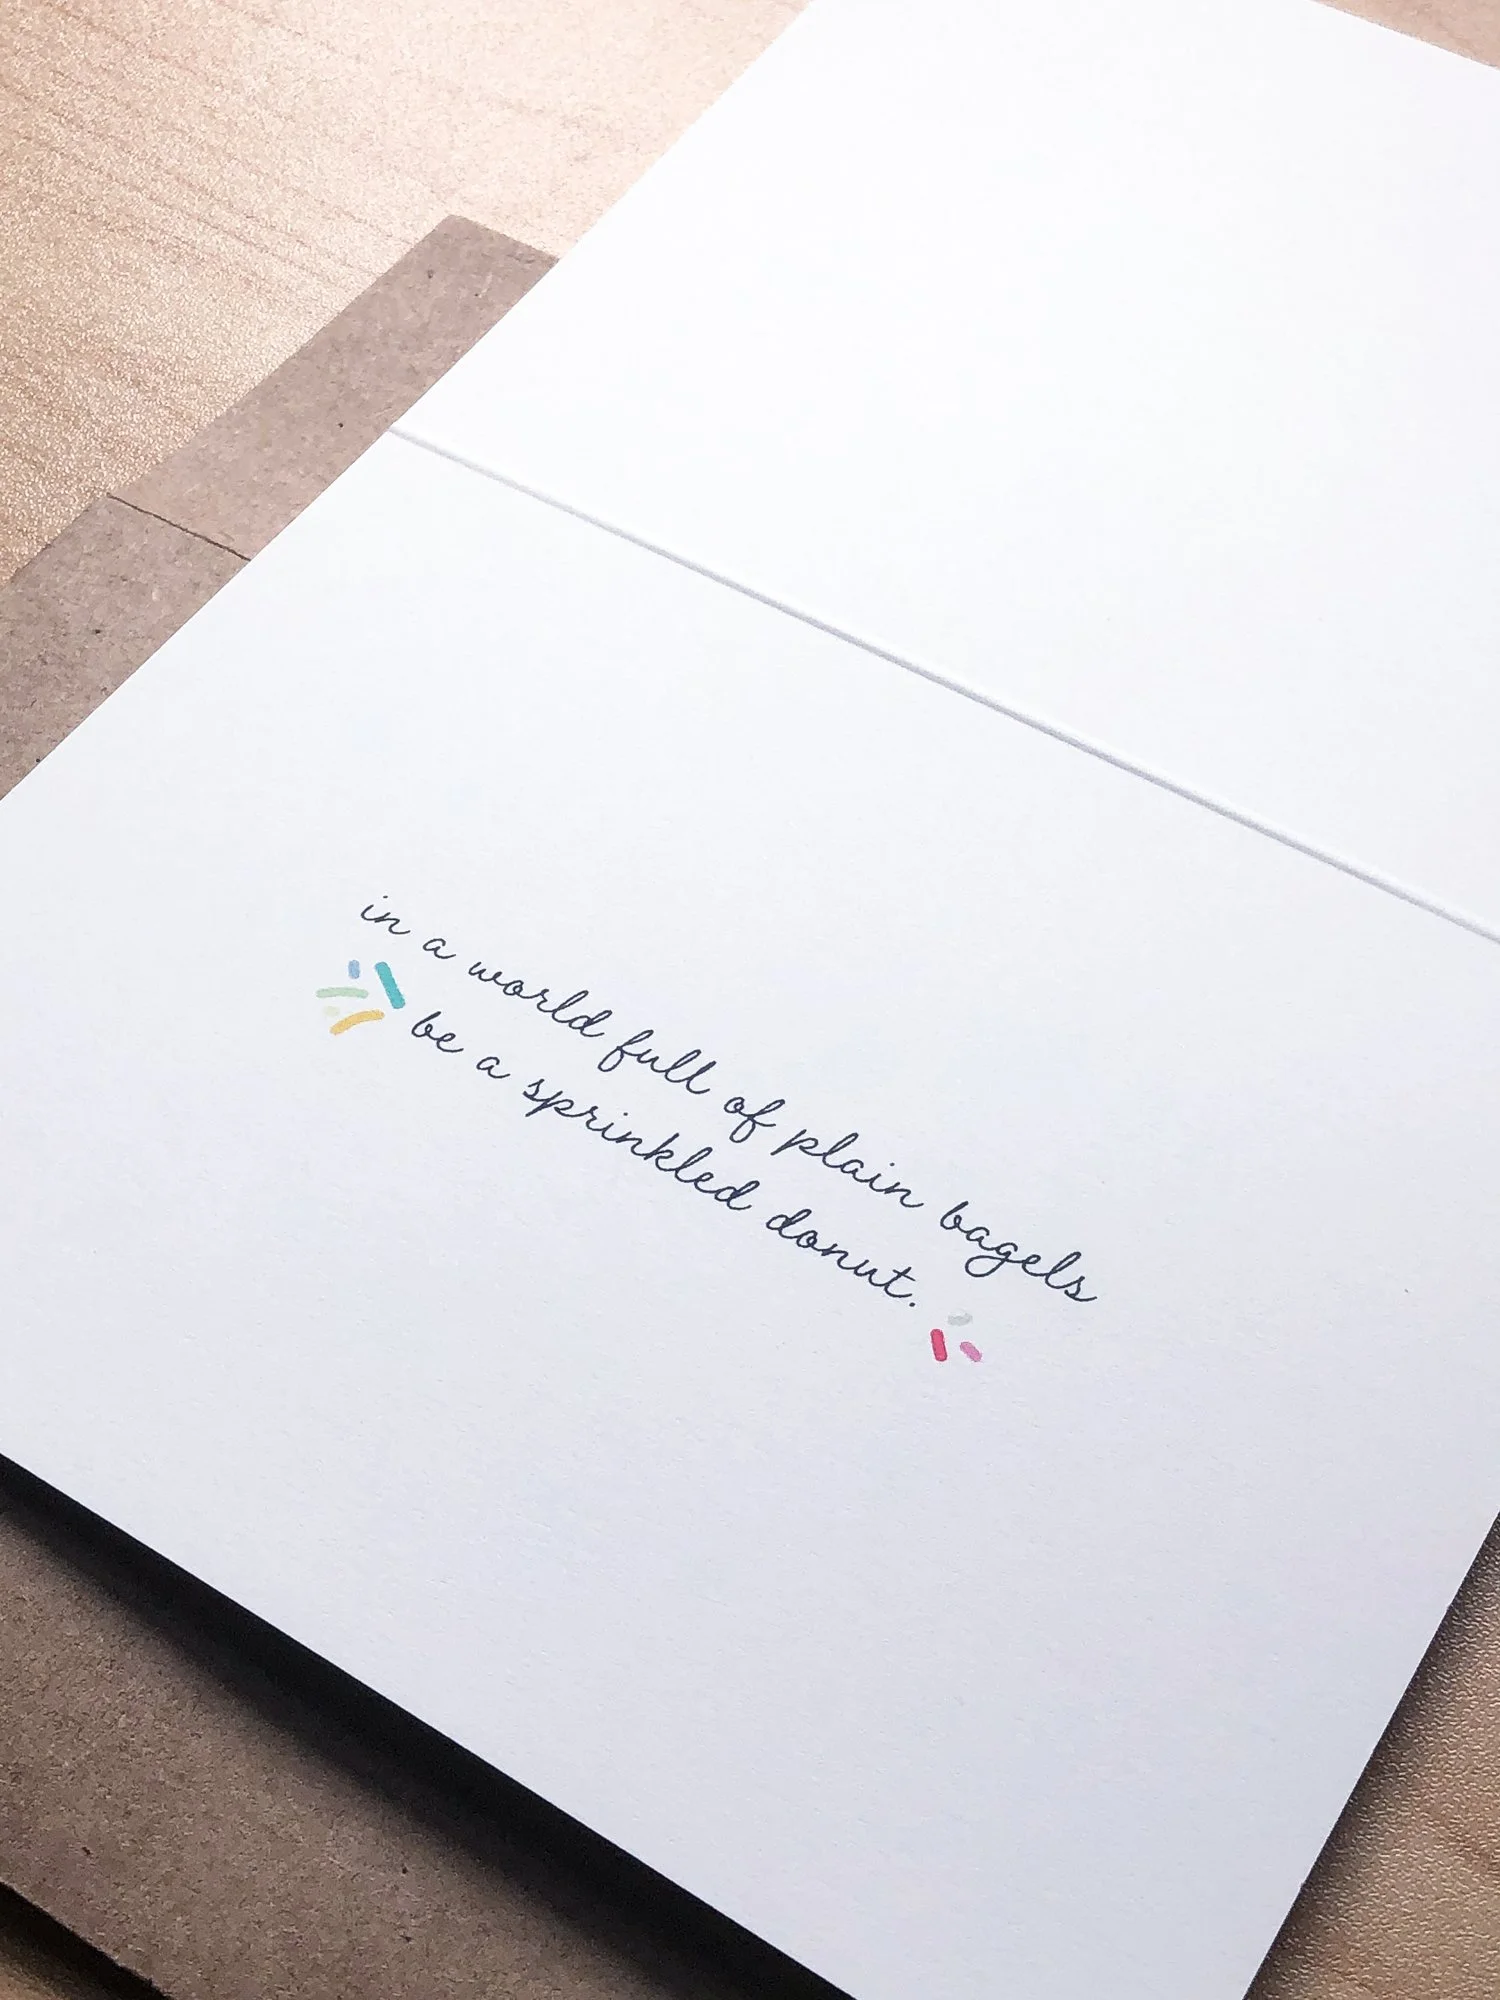 in a world full of plain bagels
be a sprinkled donut.